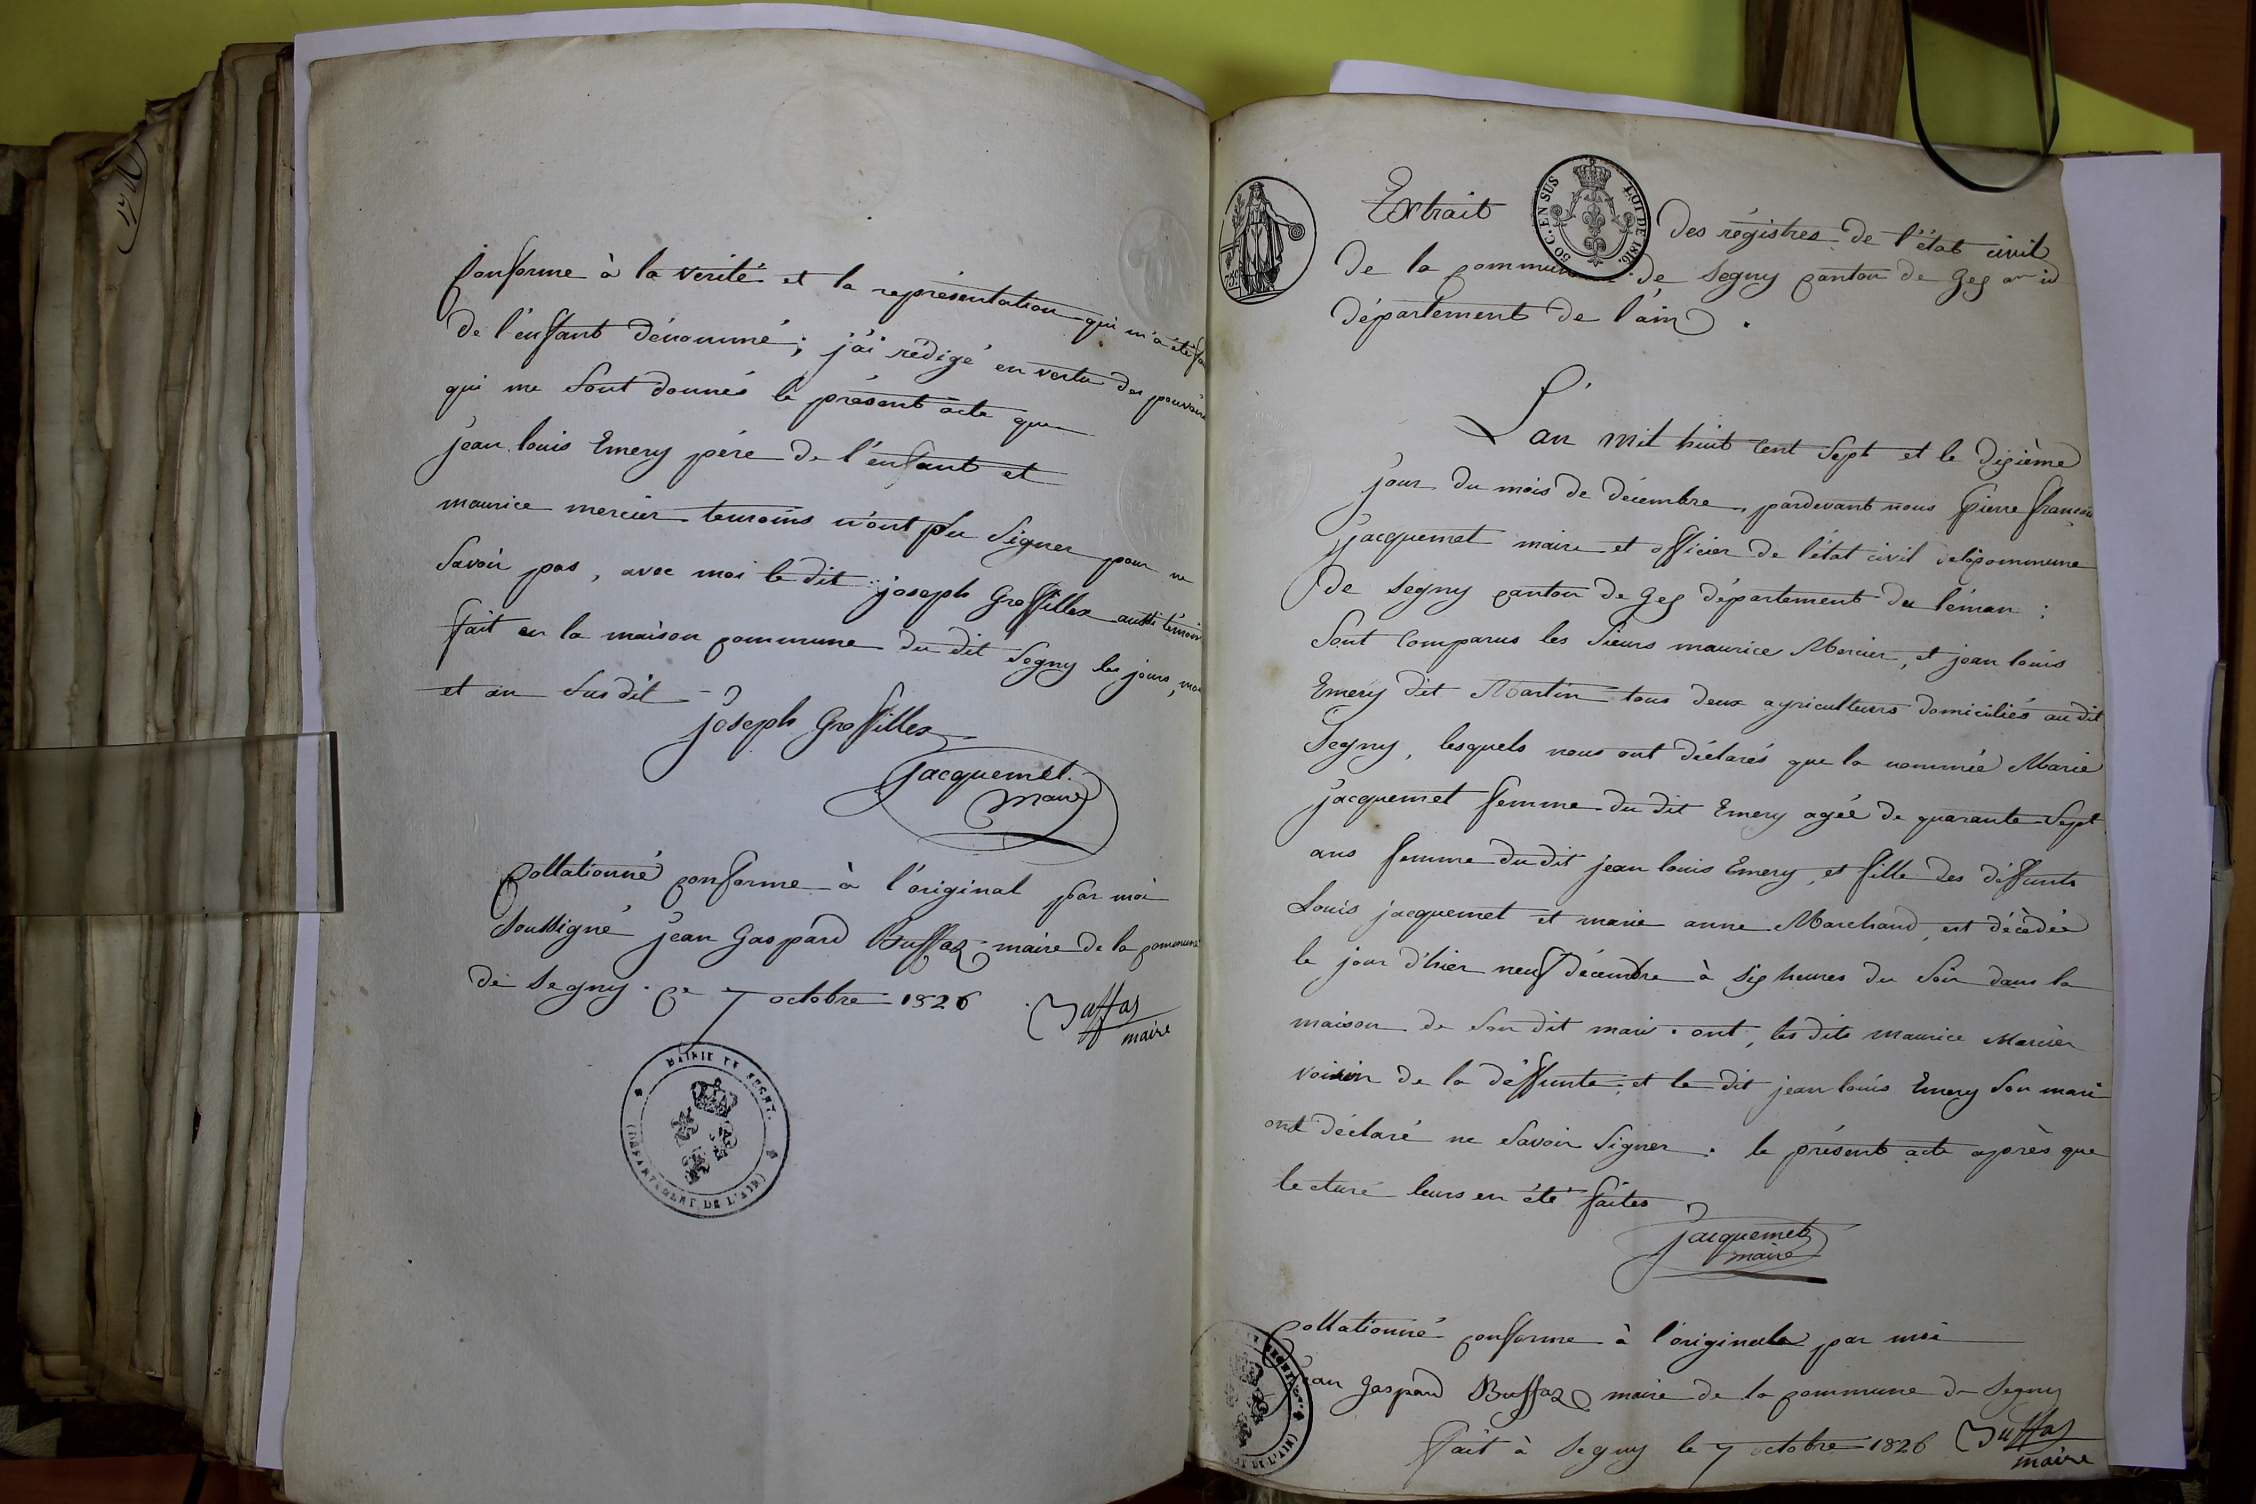 Conforme à la verité et la représentation qui m'a été
de l'enffant dénommé; j'ai rédigé en vertu des pouvoirs
qui me sont donnés le présent acte que
jean louis Emery père de l'enfant et
maurice mercier temoins n'ont pu signer pour ne
savoir pas, avec moi le dit joseph Grossillex aussi témoin
ffait en la maison commune du dit Segny les jours,
et an susdit
joseph Grossillex
Jacquemet
maire
Collationné conforme à l'original par moi
soussigné jean Gaspard Buffaz maire de la commune
de Segny. Ce 7 octobre 1826
Buffaz
maire
MAIRIE DE SEGNY.
(DÉPARTEMENT DE L'AIN)
Extrait des régistres de l'état civil
50 C. EN SUS LOI DE 1816.
de la commune de Segny canton de Gex
département de l'ain.
L'an mil huit cent sept et le dixième
jour du mois de décembre, pardevant nous pierre françois
Jacquemet maire et officier de l'état civil de la commune
de Segny canton de Gex département du léman:
sont comparus les sieurs maurice Mercier, et jean louis
Emery dit Martin tous deux agriculteurs domiciliés au dit
Segny, lesquels nous ont déclarés que la nommée Marie
jacquemet ffemme du dit Emery agée de quarante-sept
ans femme du dit jean louis Emery, et fille des déffunts
Louis jacquemet et marie anne Marchand, est décédée
le jour d'hier neuf décembre à six heures du soir dans la
maison de son dit mari. ont, les dits maurice Mercier
voisin de la déffunte, et le dit jean louis Emery son mari
ont déclaré ne savoir signer. le présent acte après que
lecture leurs en été faites
jacquemet
maire
Collationné conforme à l'originale par moi
jean Gaspard Buffaz maire de la commune de Segny
ffait à Segny le 7 octobre 1826 Buffaz
maire